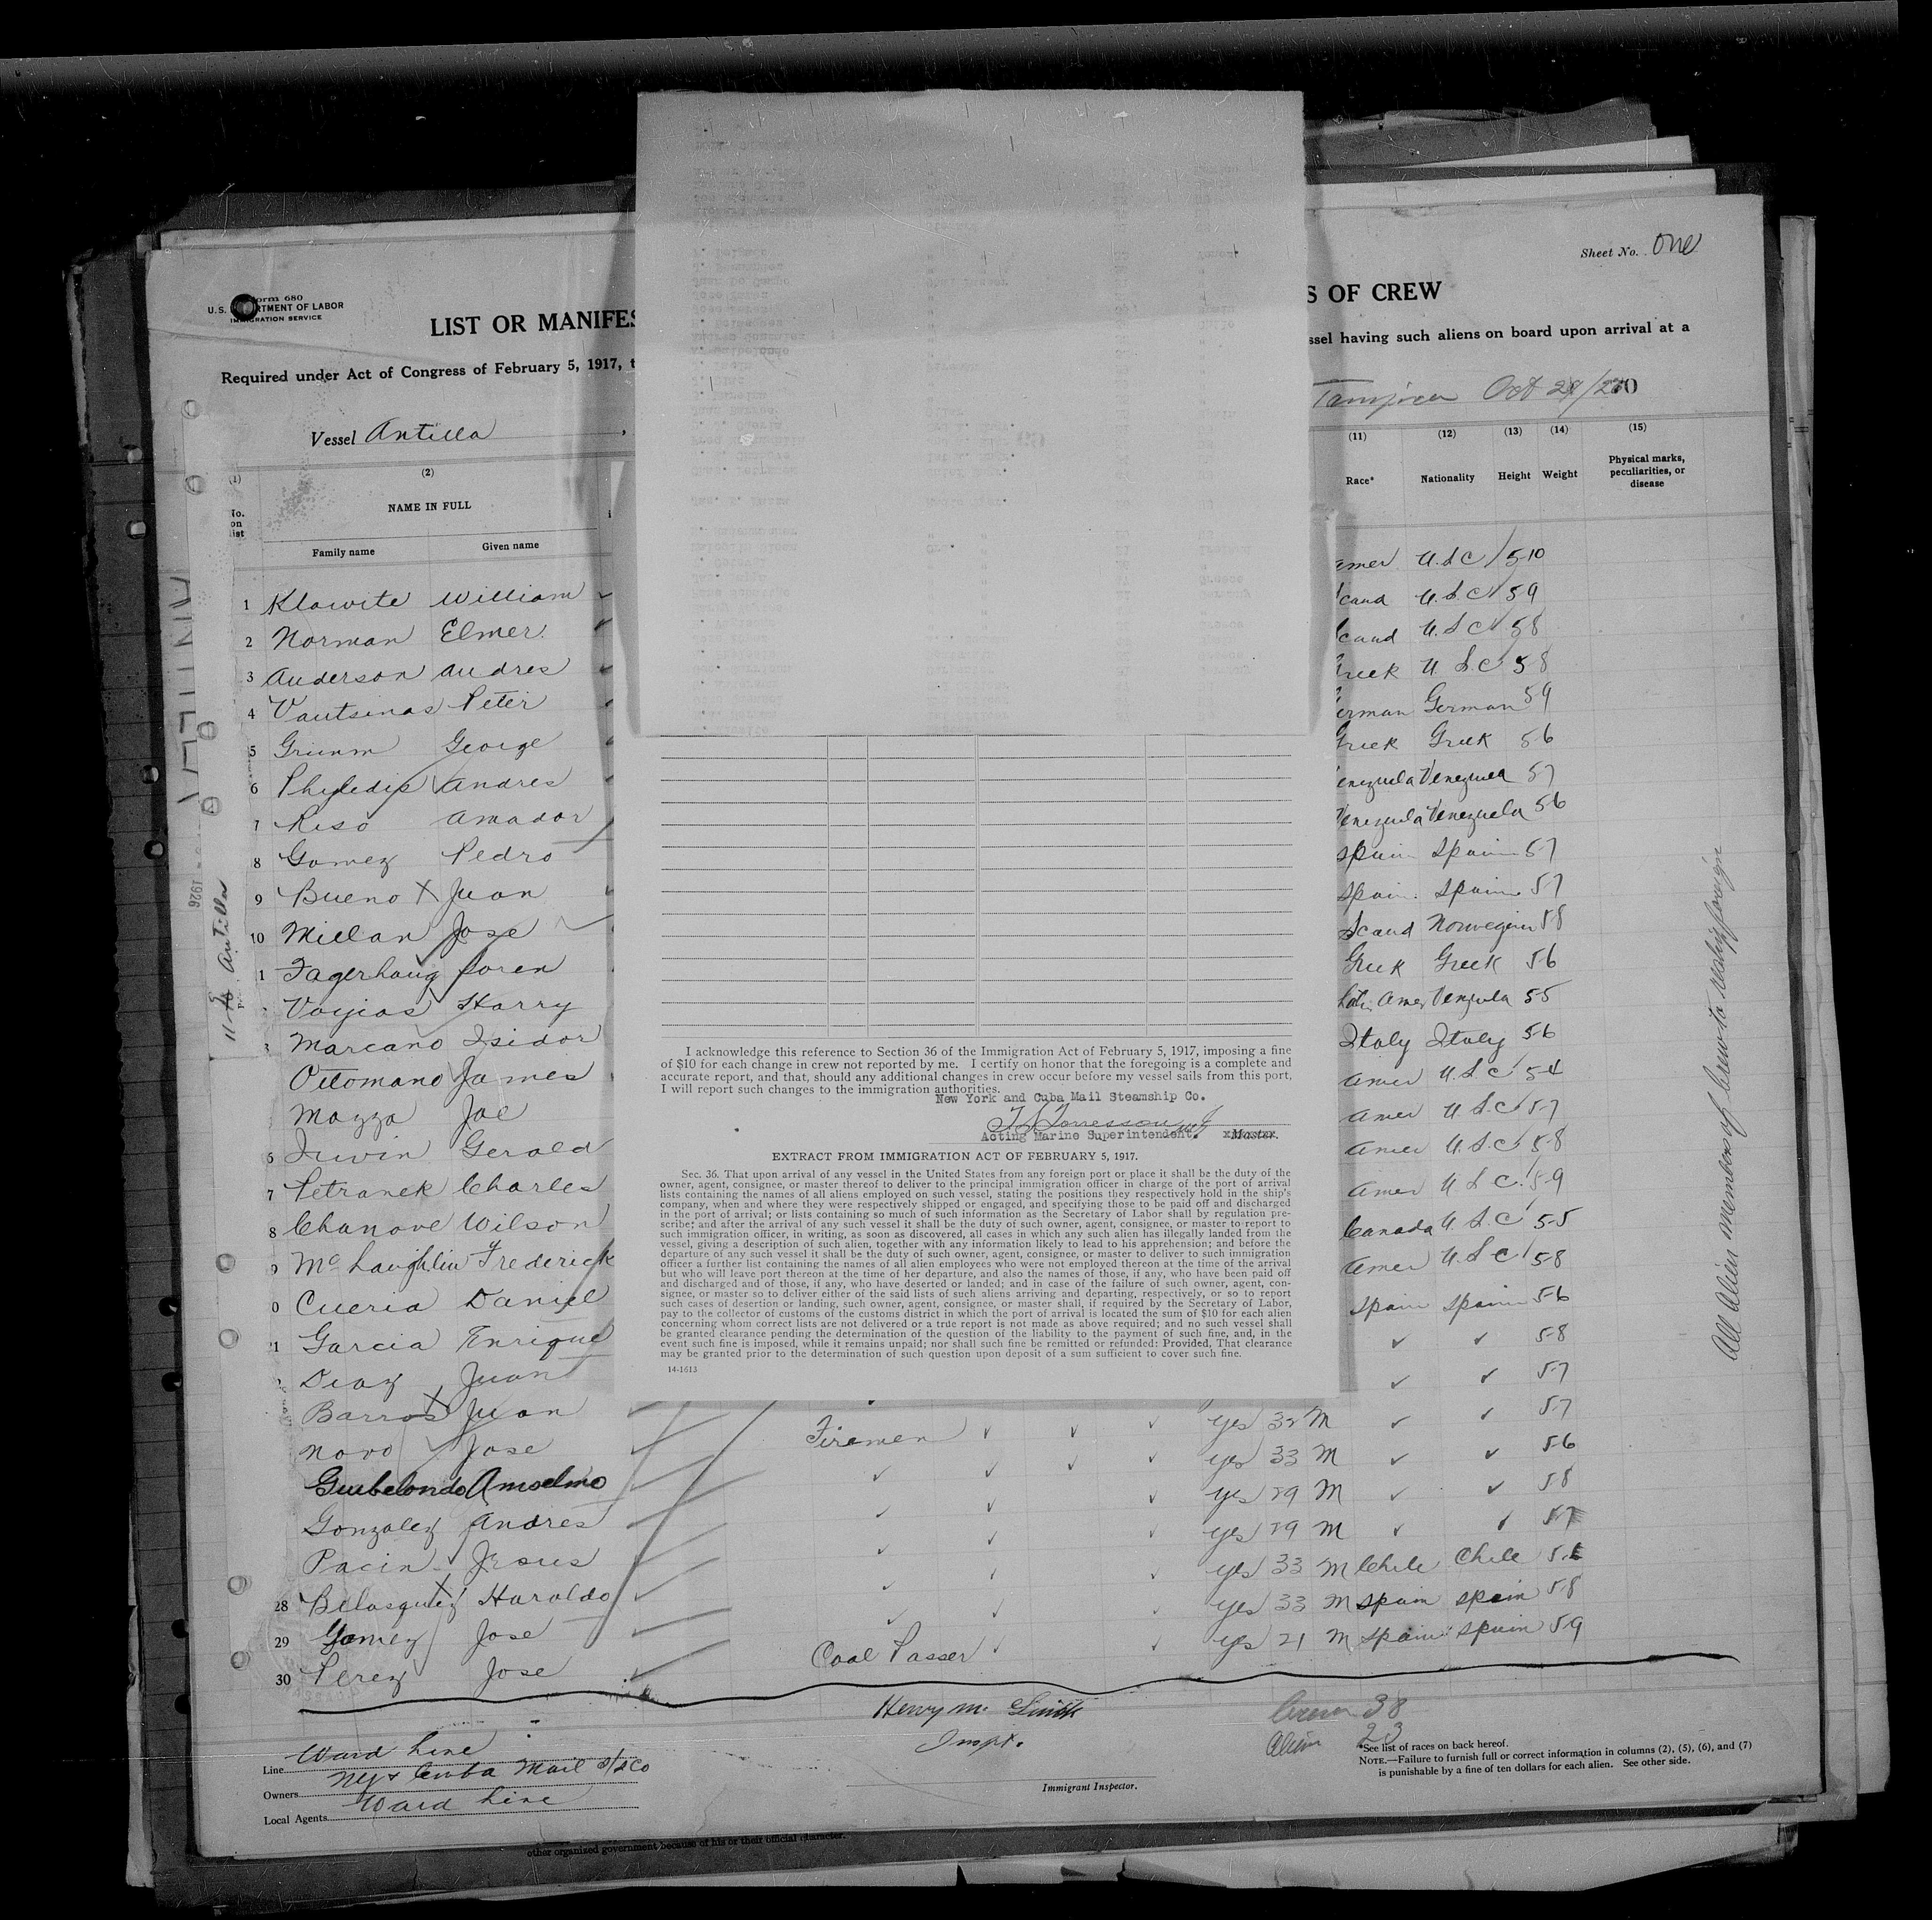 Sheet No. One
Form 680
U.S. DEPARTMENT OF LABOR
IMMIGRATION SERVICE
LIST OR MANIFES
S OF CREW
Required under Act of Congress of February 5, 1917, t
ssel having such aliens on board upon arrival at a
Vessel Antilla ,
Oct
(1)
(2)
(11) (12) (13) (14) (15)
No. on list
NAME IN FULL
Family name Given name
Race* Nationality Height Weight Physical marks, peculiarities, or disease
1 Klawite William
amer U.S.C 5-10
2 Norman Elmer
Scand U.S.C 5-9
3 Anderson Andres
Scand U.S.C 5-8
4 Vautsinas Peter
Greek U.S.C 5-8
5 Grimm George
German German 5-9
6 Phyledis Andres
Greek Greek 5-6
7 Riso Amador
Venezuela Venezuela 5-7
8 Gomez Pedro
Venezuela Venezuela 5-6
9 Bueno X Juan
Spain Spain 5-7
10 Millan Jose
Spain Spain 5-7
1 Fagerhaug Soren
Scand Norwegian 5-8
Voyias Harry
Greek Greek 5-6
3 Marcano Isidor
5-5
Ottomano James
Italy Italy 5-6
Mazza Joe
Amer U.S.C 5-4
6 Irwin Gerald
Amer U.S.C 5-7
7 Petranek Charles
Amer U.S.C 5-8
8 Chanove Wilson
Amer U.S.C. 5-9
9 McLaughlin Frederick
Canada U.S.C 5-5
0 Cueria Daniel
Amer U.S.C 5-8
21 Garcia Enrique
Spain Spain 5-6
Diaz Juan
✓ ✓ 5-8
Barros X Juan
✓ ✓ 5-7
Novo Jose
Firemen ✓ ✓ ✓ yes 32 M ✓ ✓ 5-7
Guibelondo Anselmo
✓ ✓ ✓ ✓ yes 33 M ✓ ✓ 5-6
Gonzalez Andres
✓ ✓ ✓ yes 29 M ✓ ✓ 5-8
Pacin Jesus
✓ ✓ ✓ yes 29 M ✓ ✓ 5-7
28 Belasquez X Haroldo
✓ ✓ ✓ yes 33 M Chile Chile
29 Gomez Jose
✓ ✓ ✓ yes 33 M Spain Spain 5-8
30 Perez Jose
Coal Passer ✓ ✓ yes 21 M Spain Spain 5-9
ANTILLA
1926
Antilla
I acknowledge this reference to Section 36 of the Immigration Act of February 5, 1917, imposing a fine
of $10 for each change in crew not reported by me. I certify on honor that the foregoing is a complete and
accurate report, and that, should any additional changes in crew occur before my vessel sails from this port,
I will report such changes to the immigration authorities.
New York and Cuba Mail Steamship Co.
Acting Marine Superintendent. Master.
EXTRACT FROM IMMIGRATION ACT OF FEBRUARY 5, 1917.
Sec. 36. That upon arrival of any vessel in the United States from any foreign port or place it shall be the duty of the
owner, agent, consignee, or master thereof to deliver to the principal immigration officer in charge of the port of arrival
lists containing the names of all aliens employed on such vessel, stating the positions they respectively hold in the ship's
company, when and where they were respectively shipped or engaged, and specifying those to be paid off and discharged
in the port of arrival; or lists containing so much of such information as the Secretary of Labor shall by regulation pre-
scribe; and after the arrival of any such vessel it shall be the duty of such owner, agent, consignee, or master to report to
such immigration officer, in writing, as soon as discovered, all cases in which any such alien has illegally landed from the
vessel, giving a description of such alien, together with any information likely to lead to his apprehension; and before the
departure of any such vessel it shall be the duty of such owner, agent, consignee, or master to deliver to such immigration
officer a further list containing the names of all alien employees who were not employed thereon at the time of the arrival
but who will leave port thereon at the time of her departure, and also the names of those, if any, who have been paid off
and discharged and of those, if any, who have deserted or landed; and in case of the failure of such owner, agent, con-
signee, or master so to deliver either of the said lists of such aliens arriving and departing, respectively, or so to report
such cases of desertion or landing, such owner, agent, consignee, or master shall, if required by the Secretary of Labor,
pay to the collector of customs of the customs district in which the port of arrival is located the sum of $10 for each alien
concerning whom correct lists are not delivered or a true report is not made as above required; and no such vessel shall
be granted clearance pending the determination of the question of the liability to the payment of such fine, and, in the
event such fine is imposed, while it remains unpaid; nor shall such fine be remitted or refunded: Provided, That clearance
may be granted prior to the determination of such question upon deposit of a sum sufficient to cover such fine.
14-1613
All Alien members of crew to reship foreign
Henry M. Smith
Inspt.
Immigrant Inspector.
Crew 38
Alien 23
Line Ward Line
Owners NY & Cuba Mail S/S Co
Local Agents Ward Line
*See list of races on back hereof.
NOTE.—Failure to furnish full or correct information in columns (2), (5), (6), and (7)
is punishable by a fine of ten dollars for each alien. See other side.
other organized government because of his or their official character.